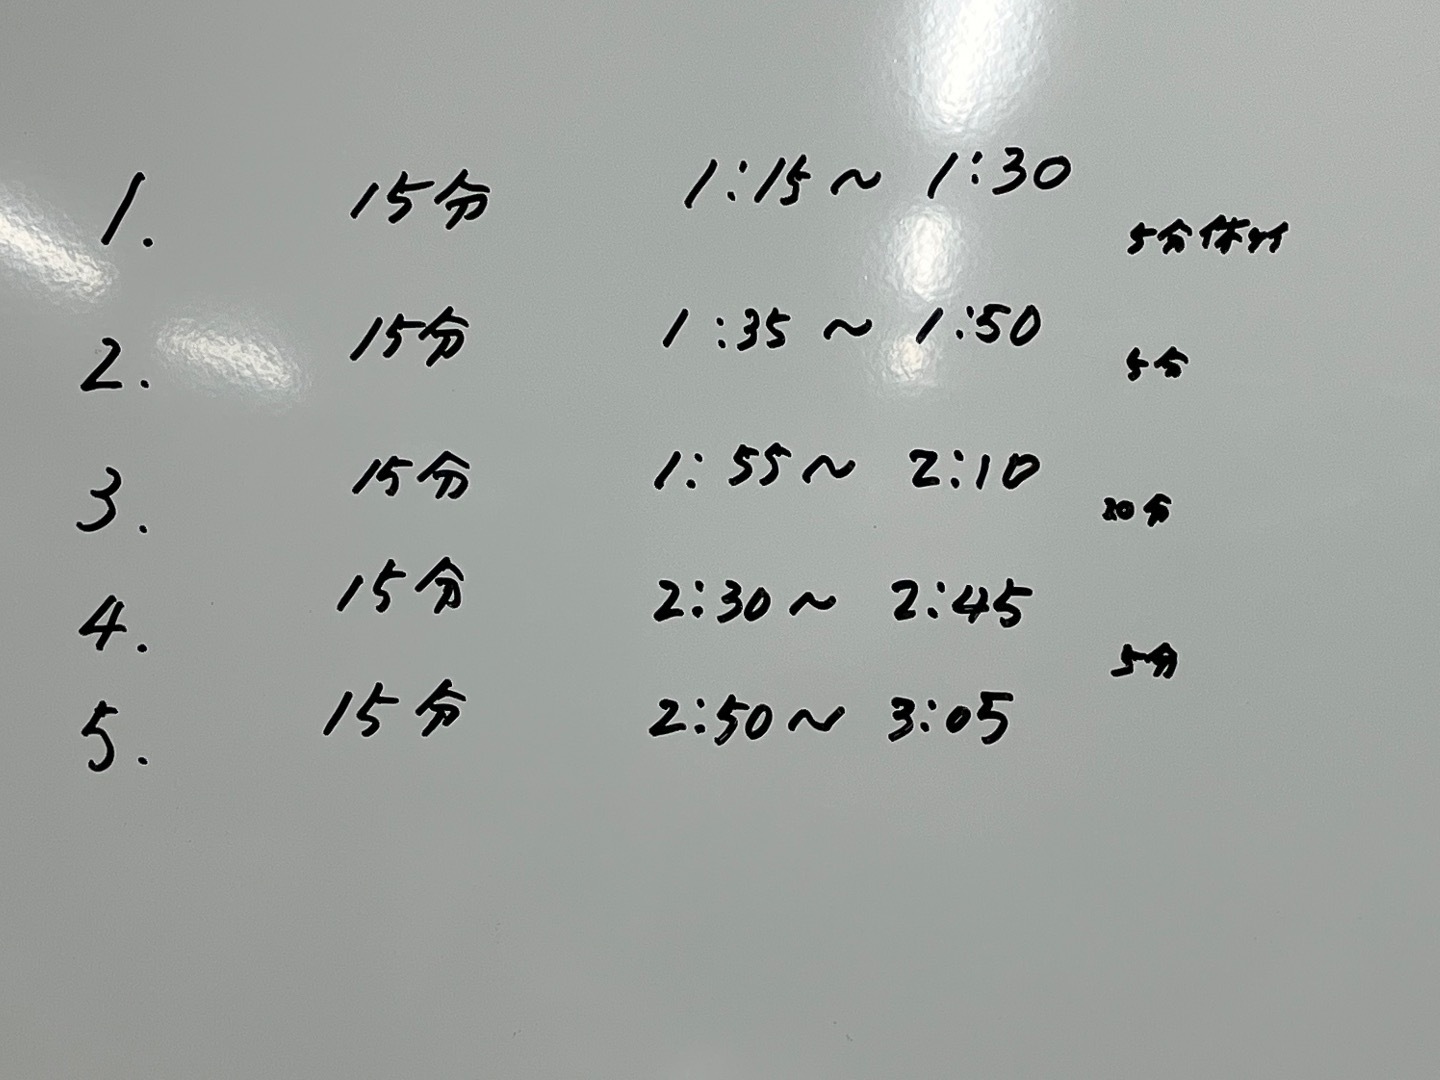 1. 15分 1:15～1:30
5分休け
2. 15分 1:35～1:50
5分
3. 15分 1:55～2:10
20分
4. 15分 2:30～2:45
5分
5. 15分 2:50～3:05